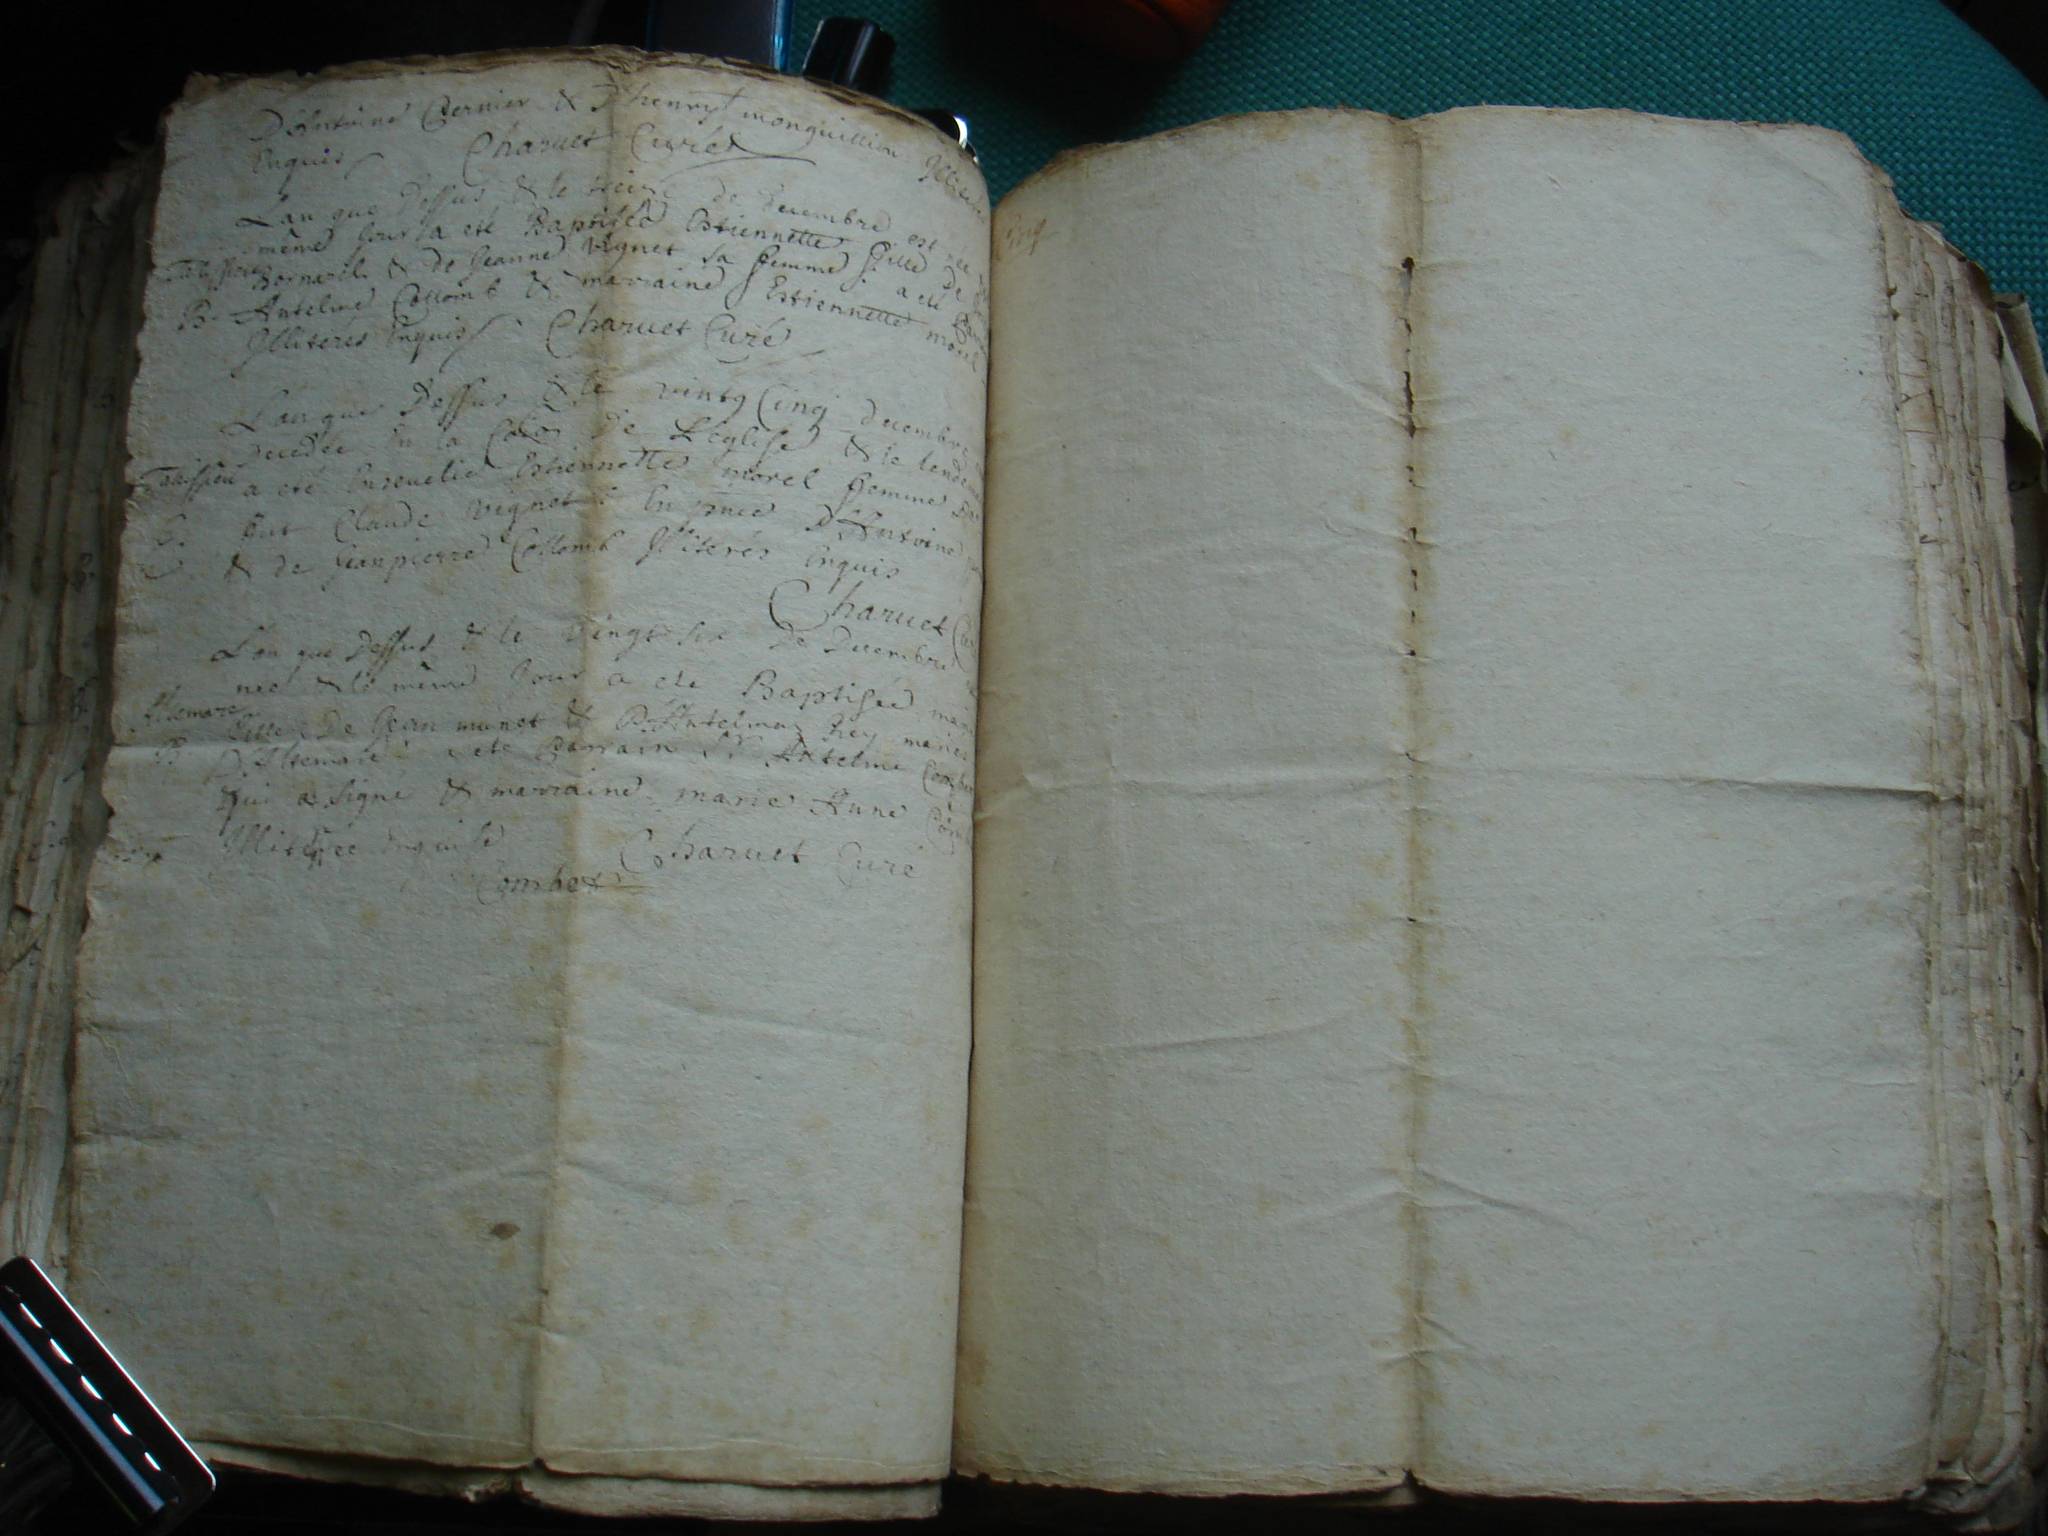 D'Antoine Cernier & D'henry monguillion Illiterés
Enquis Charuet Curé
L'an que Dessus & le seize de decembre est née
même Jour a eté Baptisée Estiennette fille de
Bornard & de Jeanne Vignet sa femme a eté
Talissieu
B. Antelme Collomb & marraine Estiennette morel
Illiterés Enquis Charuet Curé
L'an que Dessus & le vintg Cinq decembre
decedée En la de L'eglise & le lendemain
Talissieu
a eté Ensevelie Estiennette morel femme
E. Claude Vignet En D'Antoine
& de Jeanpierre Collomb Illiterés Enquis
Charuet Curé
L'an que Dessus & le Vingt six De Decembre
née & le même Jour a eté Baptisée marie
Allemare
fille De Jean munet & D'Antelma Rey mariés
B. D'Allemare a eté Parrain Sr Antelme Combet
qui a Signé & marraine marie Anne
Illiterée enquise Charuet Curé
Combet